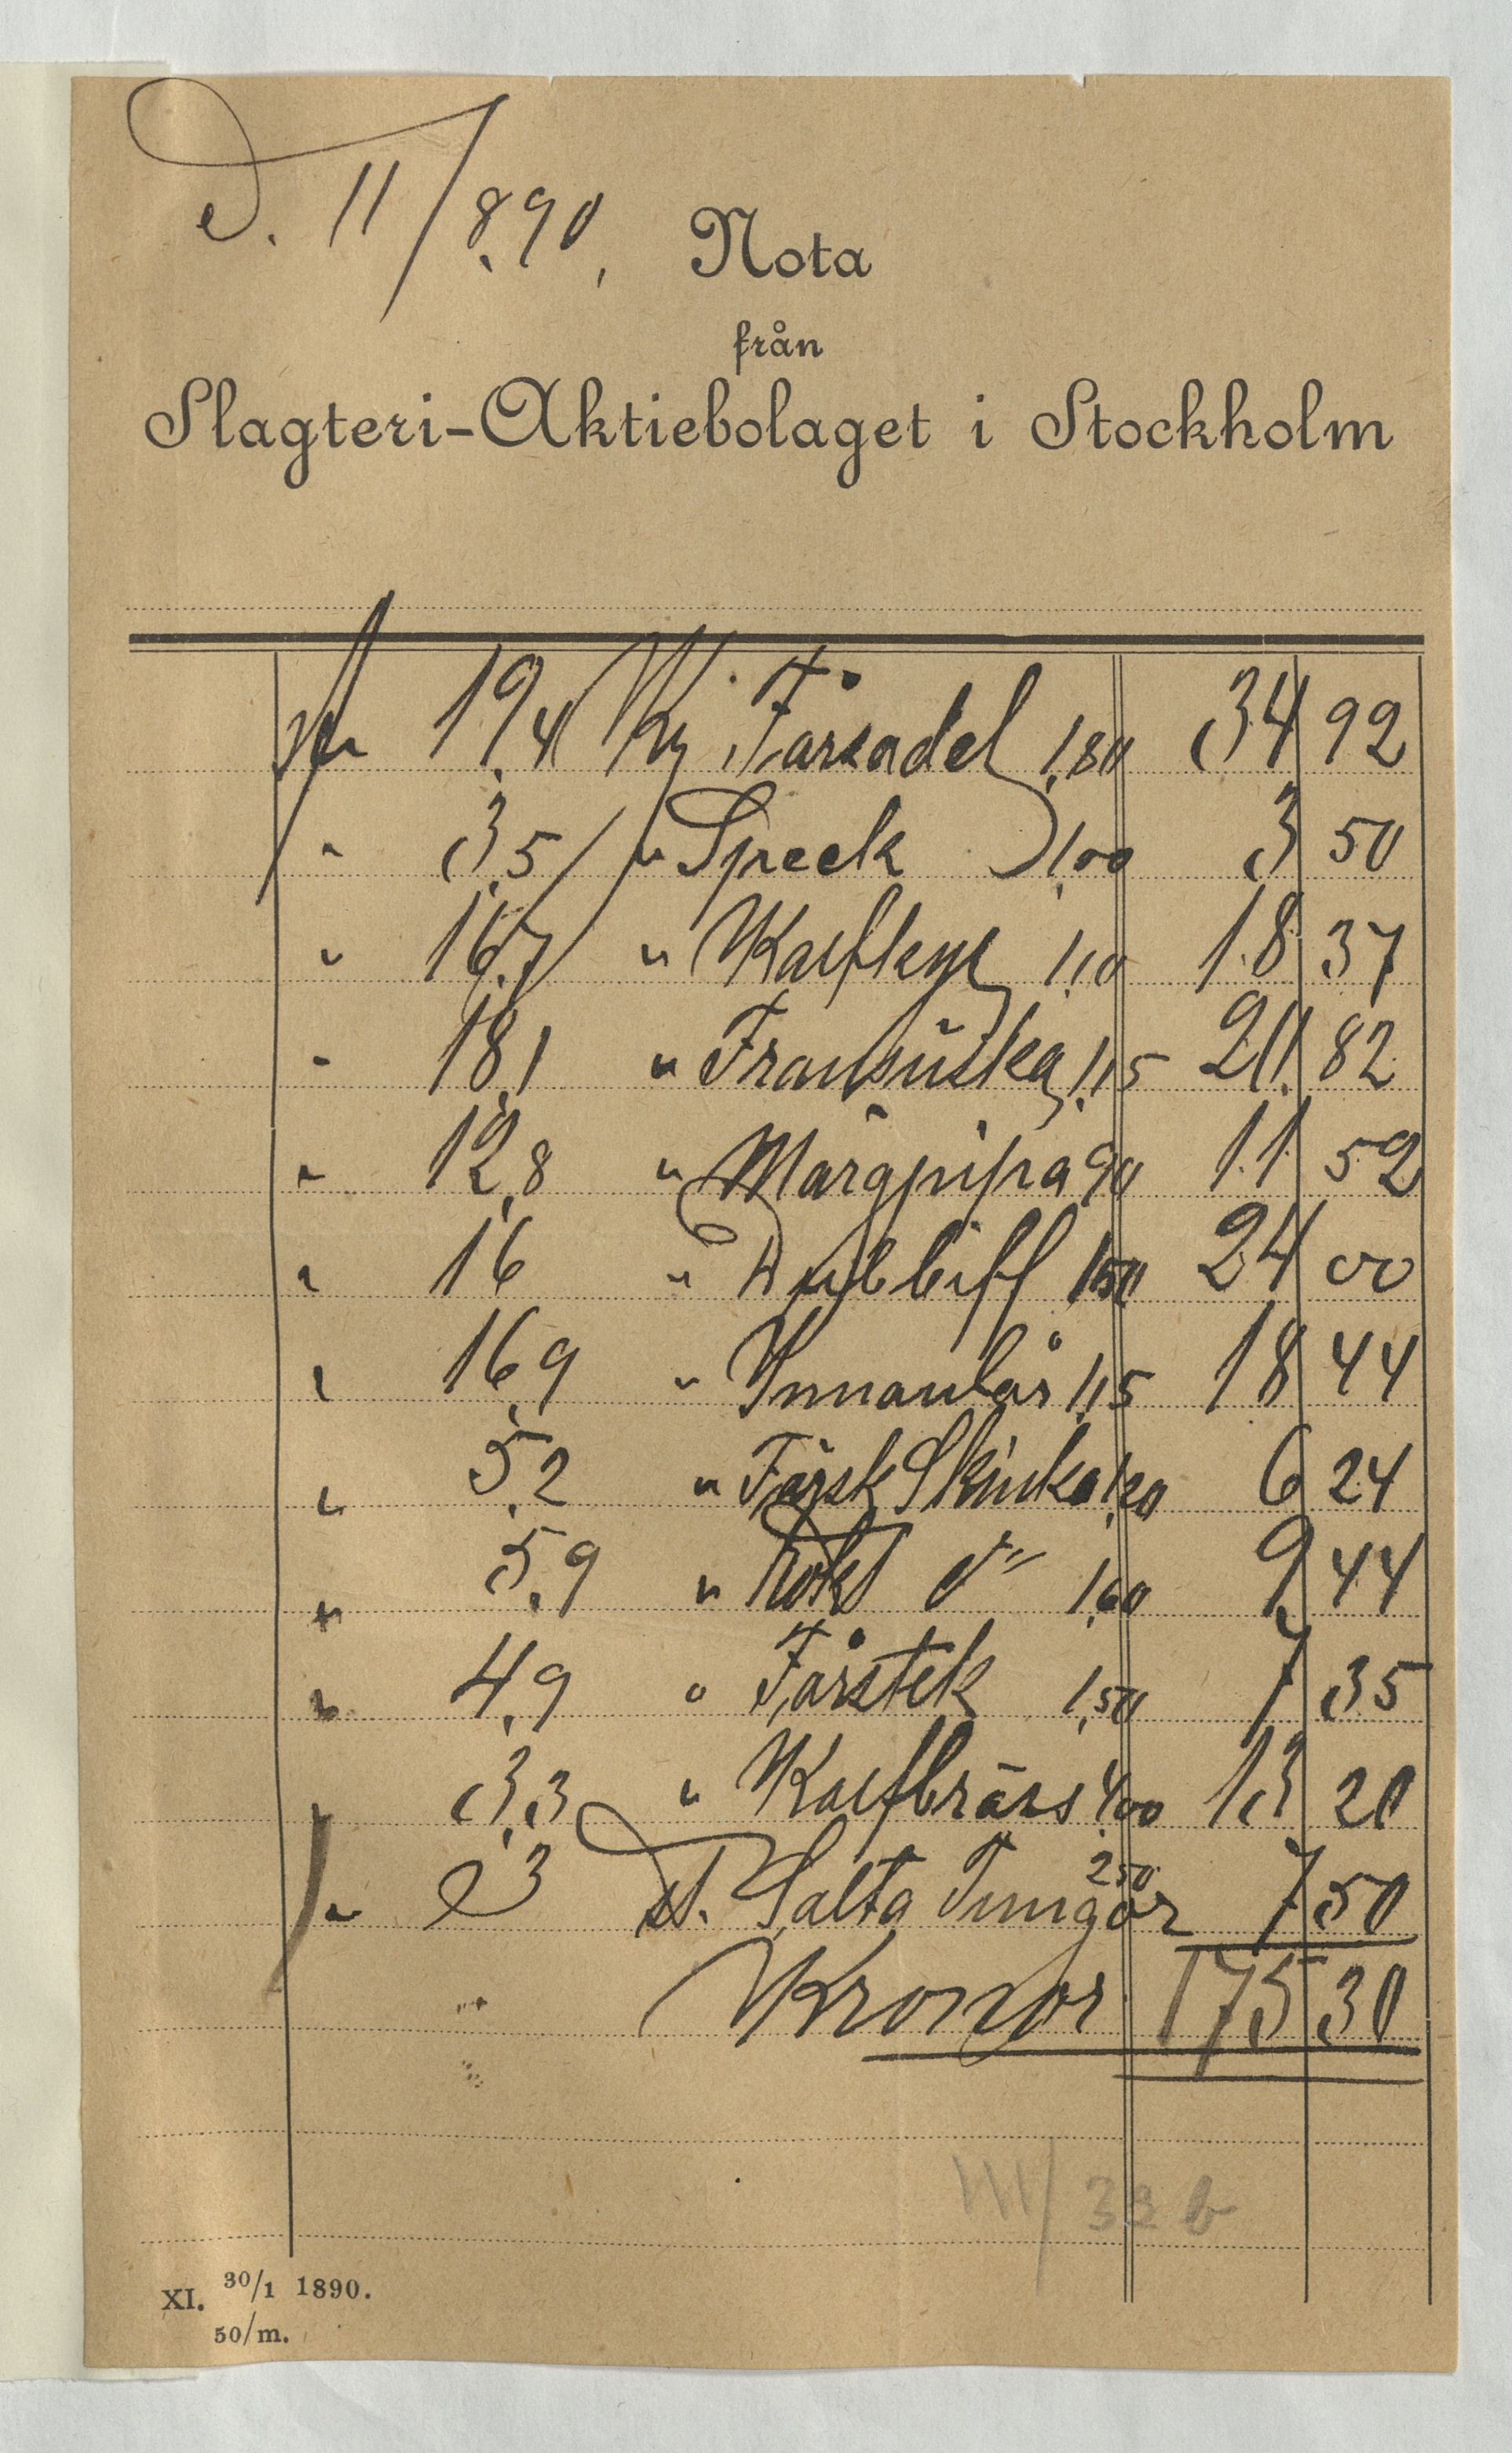 d. 11/8.90.
Nota
från
Slagteri-Aktiebolaget i Stockholm
19,4 Kg Fårsadel 1,80 34 92
" 3,5 " Speck 1,00 3 50
" 16,7 " Kalflägg 1,10 18 37
" 18,1 " Fransyska 1,15 20 82
" 12,8 " Märgpipa 90 11 52
" 16 " Rullbiff 1,50 24 00
" 16,9 " Innanlår 1,15 18 44
" 5,2 " Färsk Skinka 1,20 6 24
" 5,9 " Rökt do 1,60 9 44
" 4,9 " Fårstek 1,50 7 35
3,3 " Kalfbräss 4,00 13 20
" 3 st. Salta Tungor 2 50 7 50
Kronor 175 30
III/33 b
XI. 30/1 1890.
50/m.